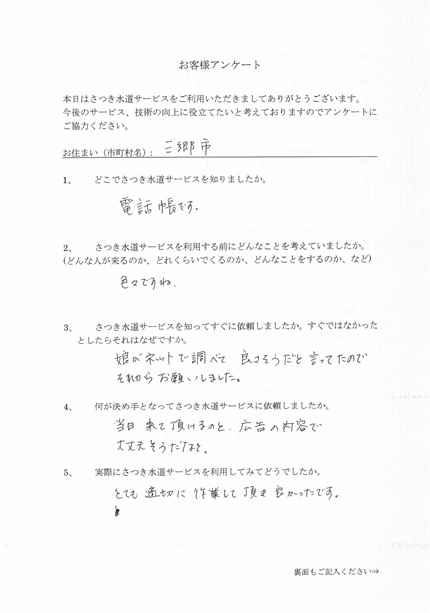 お客様アンケート
本日はさつき水道サービスをご利用いただきましてありがとうございます。
今後のサービス、技術の向上に役立てたいと考えておりますのでアンケートに
ご協力ください。
お住まい（市町村名）： 三郷市
1、 どこでさつき水道サービスを知りましたか。
電話帳です。
2、 さつき水道サービスを利用する前にどんなことを考えていましたか。
(どんな人が来るのか、どれくらいでくるのか、どんなことをするのか、など)
色々ですね.
3、 さつき水道サービスを知ってすぐに依頼しましたか。すぐではなかった
としたらそれはなぜですか。
娘がネットで調べて 良さそうだと言ってたので
それからお願いしました。
4、 何が決め手となってさつき水道サービスに依頼しましたか。
当日来て頂けるのと、広告の内容で
大丈夫そうだなと。
5、 実際にさつき水道サービスを利用してみてどうでしたか。
とても適切に作業して頂き良かったです。
裏面もご記入ください⇒